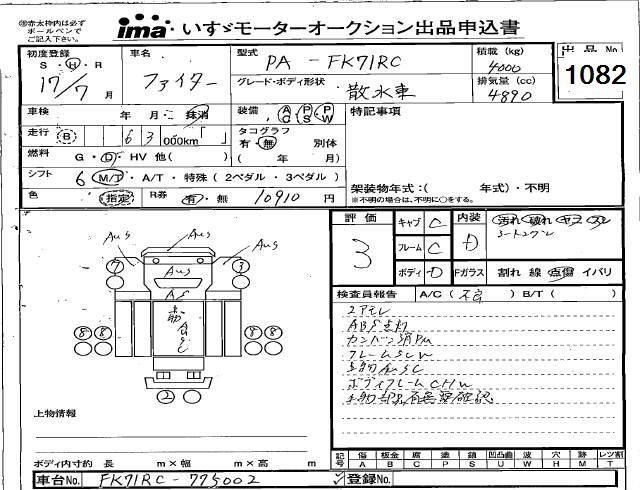 ㊟赤太枠内は必ず
ボールペンで
ご記入下さい。
ima いすゞモーターオークション出品申込書
初度登録
S・H・R
17/7月
車名
ファイター
型式
PA - FK71RC
グレード・ボディ形状
散水車
積載 (kg)
4000
排気量 (cc)
4890
出品 No
1082
車検 年 月・抹消
装備 AC PS PW
特記事項
走行 B 63 000km「 」
タコグラフ
有・無 別体
( 年 月)
燃料 G・D・HV 他( )
シフト 6 M/T・A/T・特殊(2ペダル・3ペダル)
架装物年式:( 年式)・不明
※不明の場合は、不明に○をする。
色 (指定) R券 有・無 10910 円
評価
3
キャブ C
フレーム C
ボディ D
内装 D
汚れ 破れ ヤケ スレ
Fガラス 割れ 線 点傷 イバリ
検査員報告 A/C(不良) B/T( )
エアモレ
ABS点灯
AuS AuS AuS
AuS
7 3
AS
8 8 8 8
2
上物情報
ボディ内寸約 長 m×幅 m×高 m
記号 傷A 板金B 腐C 塗P 錆S 凹凸曲U 波W 穴H 跡M レツ割T
車台No. FK71RC-775002
登録No.